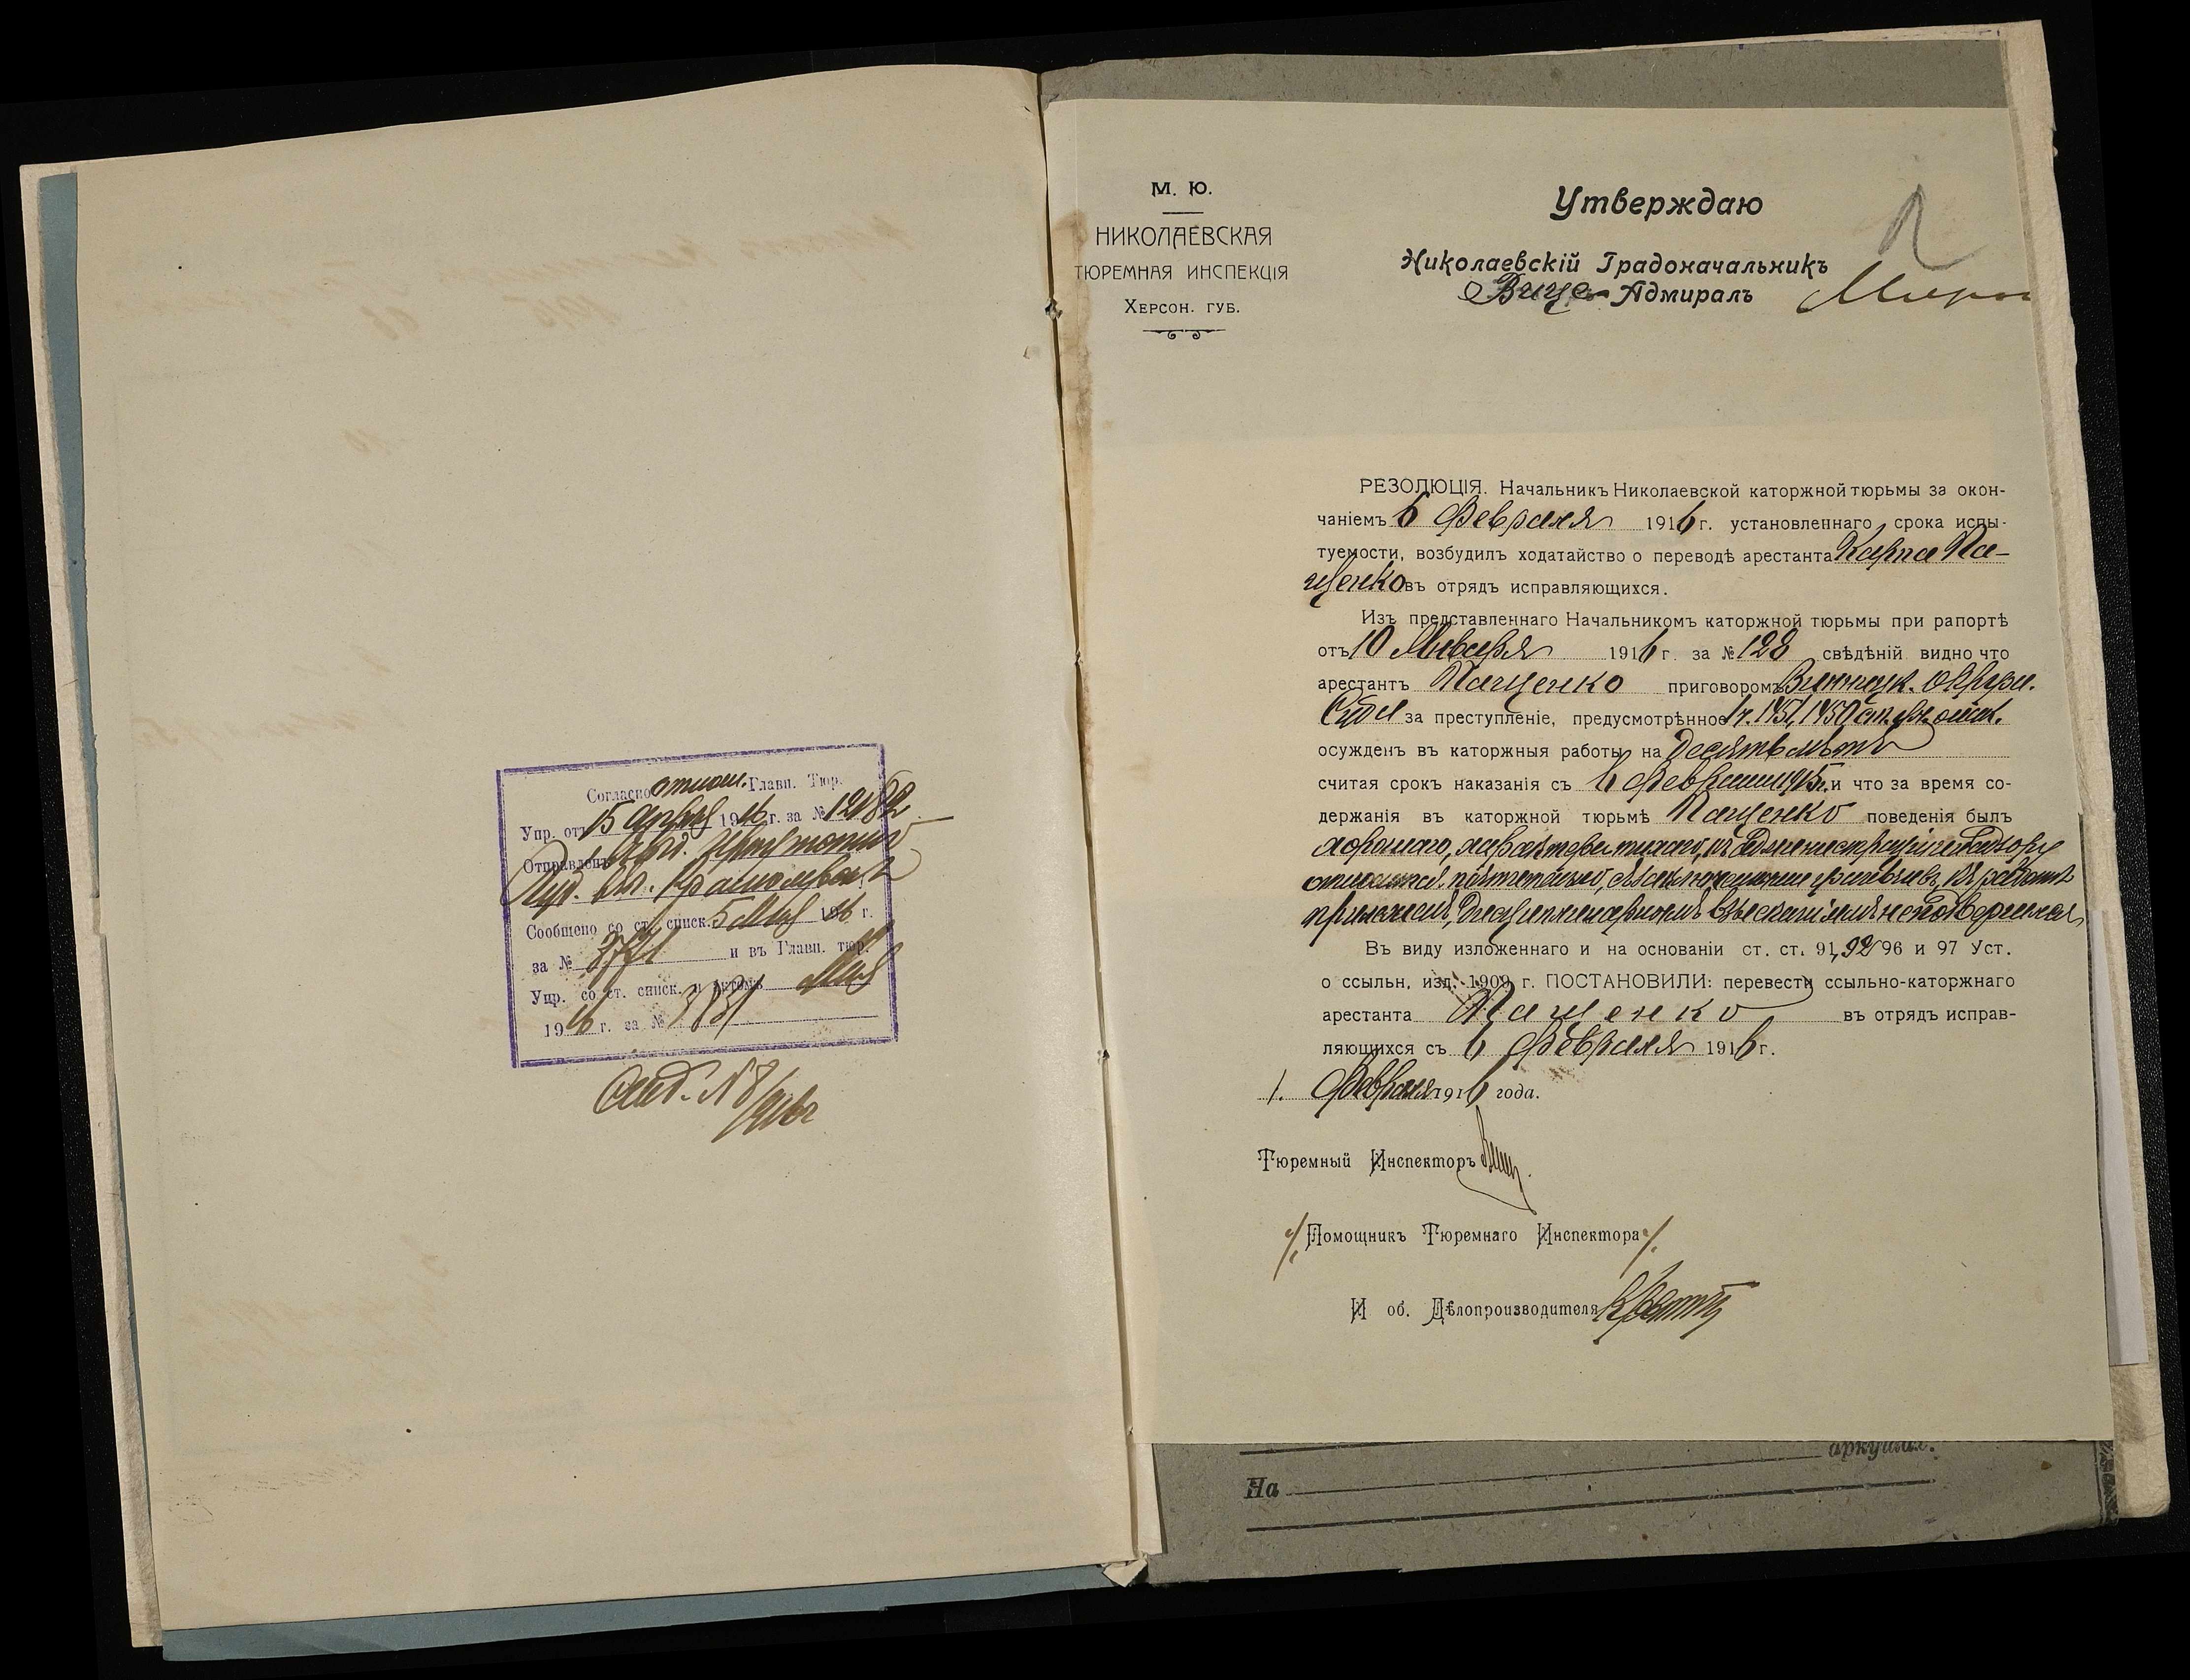 Согласно отнош. Главн. Тюр.
Упр. от 15 Апреля 1916 г. за № 12182
Отправленъ
Сообщено со ст. списк. 5 Мая 1916 г.
за № и въ Главн. тюр.
Упр. со ст. списк. и актомъ Мая
1916 г. за №
М. Ю.
НИКОЛАЕВСКАЯ
ТЮРЕМНАЯ ИНСПЕКЦІЯ
Херсон. губ.
Утверждаю
Николаевскій Градоначальникъ
Вице-Адмиралъ
РЕЗОЛЮЦІЯ. Начальникъ Николаевской каторжной тюрьмы за окон-
чаніемъ 6 Февраля 1916 г. установленнаго срока испы-
туемости, возбудилъ ходатайство о переводѣ арестанта Карпа Па-
щенко въ отрядъ исправляющихся.
Изъ представленнаго Начальникомъ каторжной тюрьмы при рапортѣ
отъ 10 Января 1916 г. за № 128 свѣдѣній видно что
арестантъ Пащенко приговоромъ Винницк. Окруж.
Суда за преступленіе, предусмотрѣнное 1 ч. 1451, 1450 ст. Ул. о нак.
осужденъ въ каторжныя работы на Десять лѣтъ
считая срокъ наказанія съ 6 Февраля 1915 г. и что за время со-
держанія въ каторжной тюрьмѣ Пащенко поведенія былъ
хорошаго, характера тихаго, къ администраціи и надзору
относился почтительно, съ заключенными уживчивъ, къ работѣ
прилеженъ, дисциплинарнымъ взысканіямъ не подвергался
Въ виду изложеннаго и на основаніи ст. ст. 91, 92 96 и 97 Уст.
о ссыльн, изд. 1909 г. ПОСТАНОВИЛИ: перевести ссыльно-каторжнаго
арестанта Пащенко въ отрядъ исправ-
ляющихся съ 6 Февраля 1916 г.
1. Февраля 1916 года.
Тюремный Инспекторъ
Помощникъ Тюремнаго Инспектора
И об. Дѣлопроизводителя
аркушах.
На